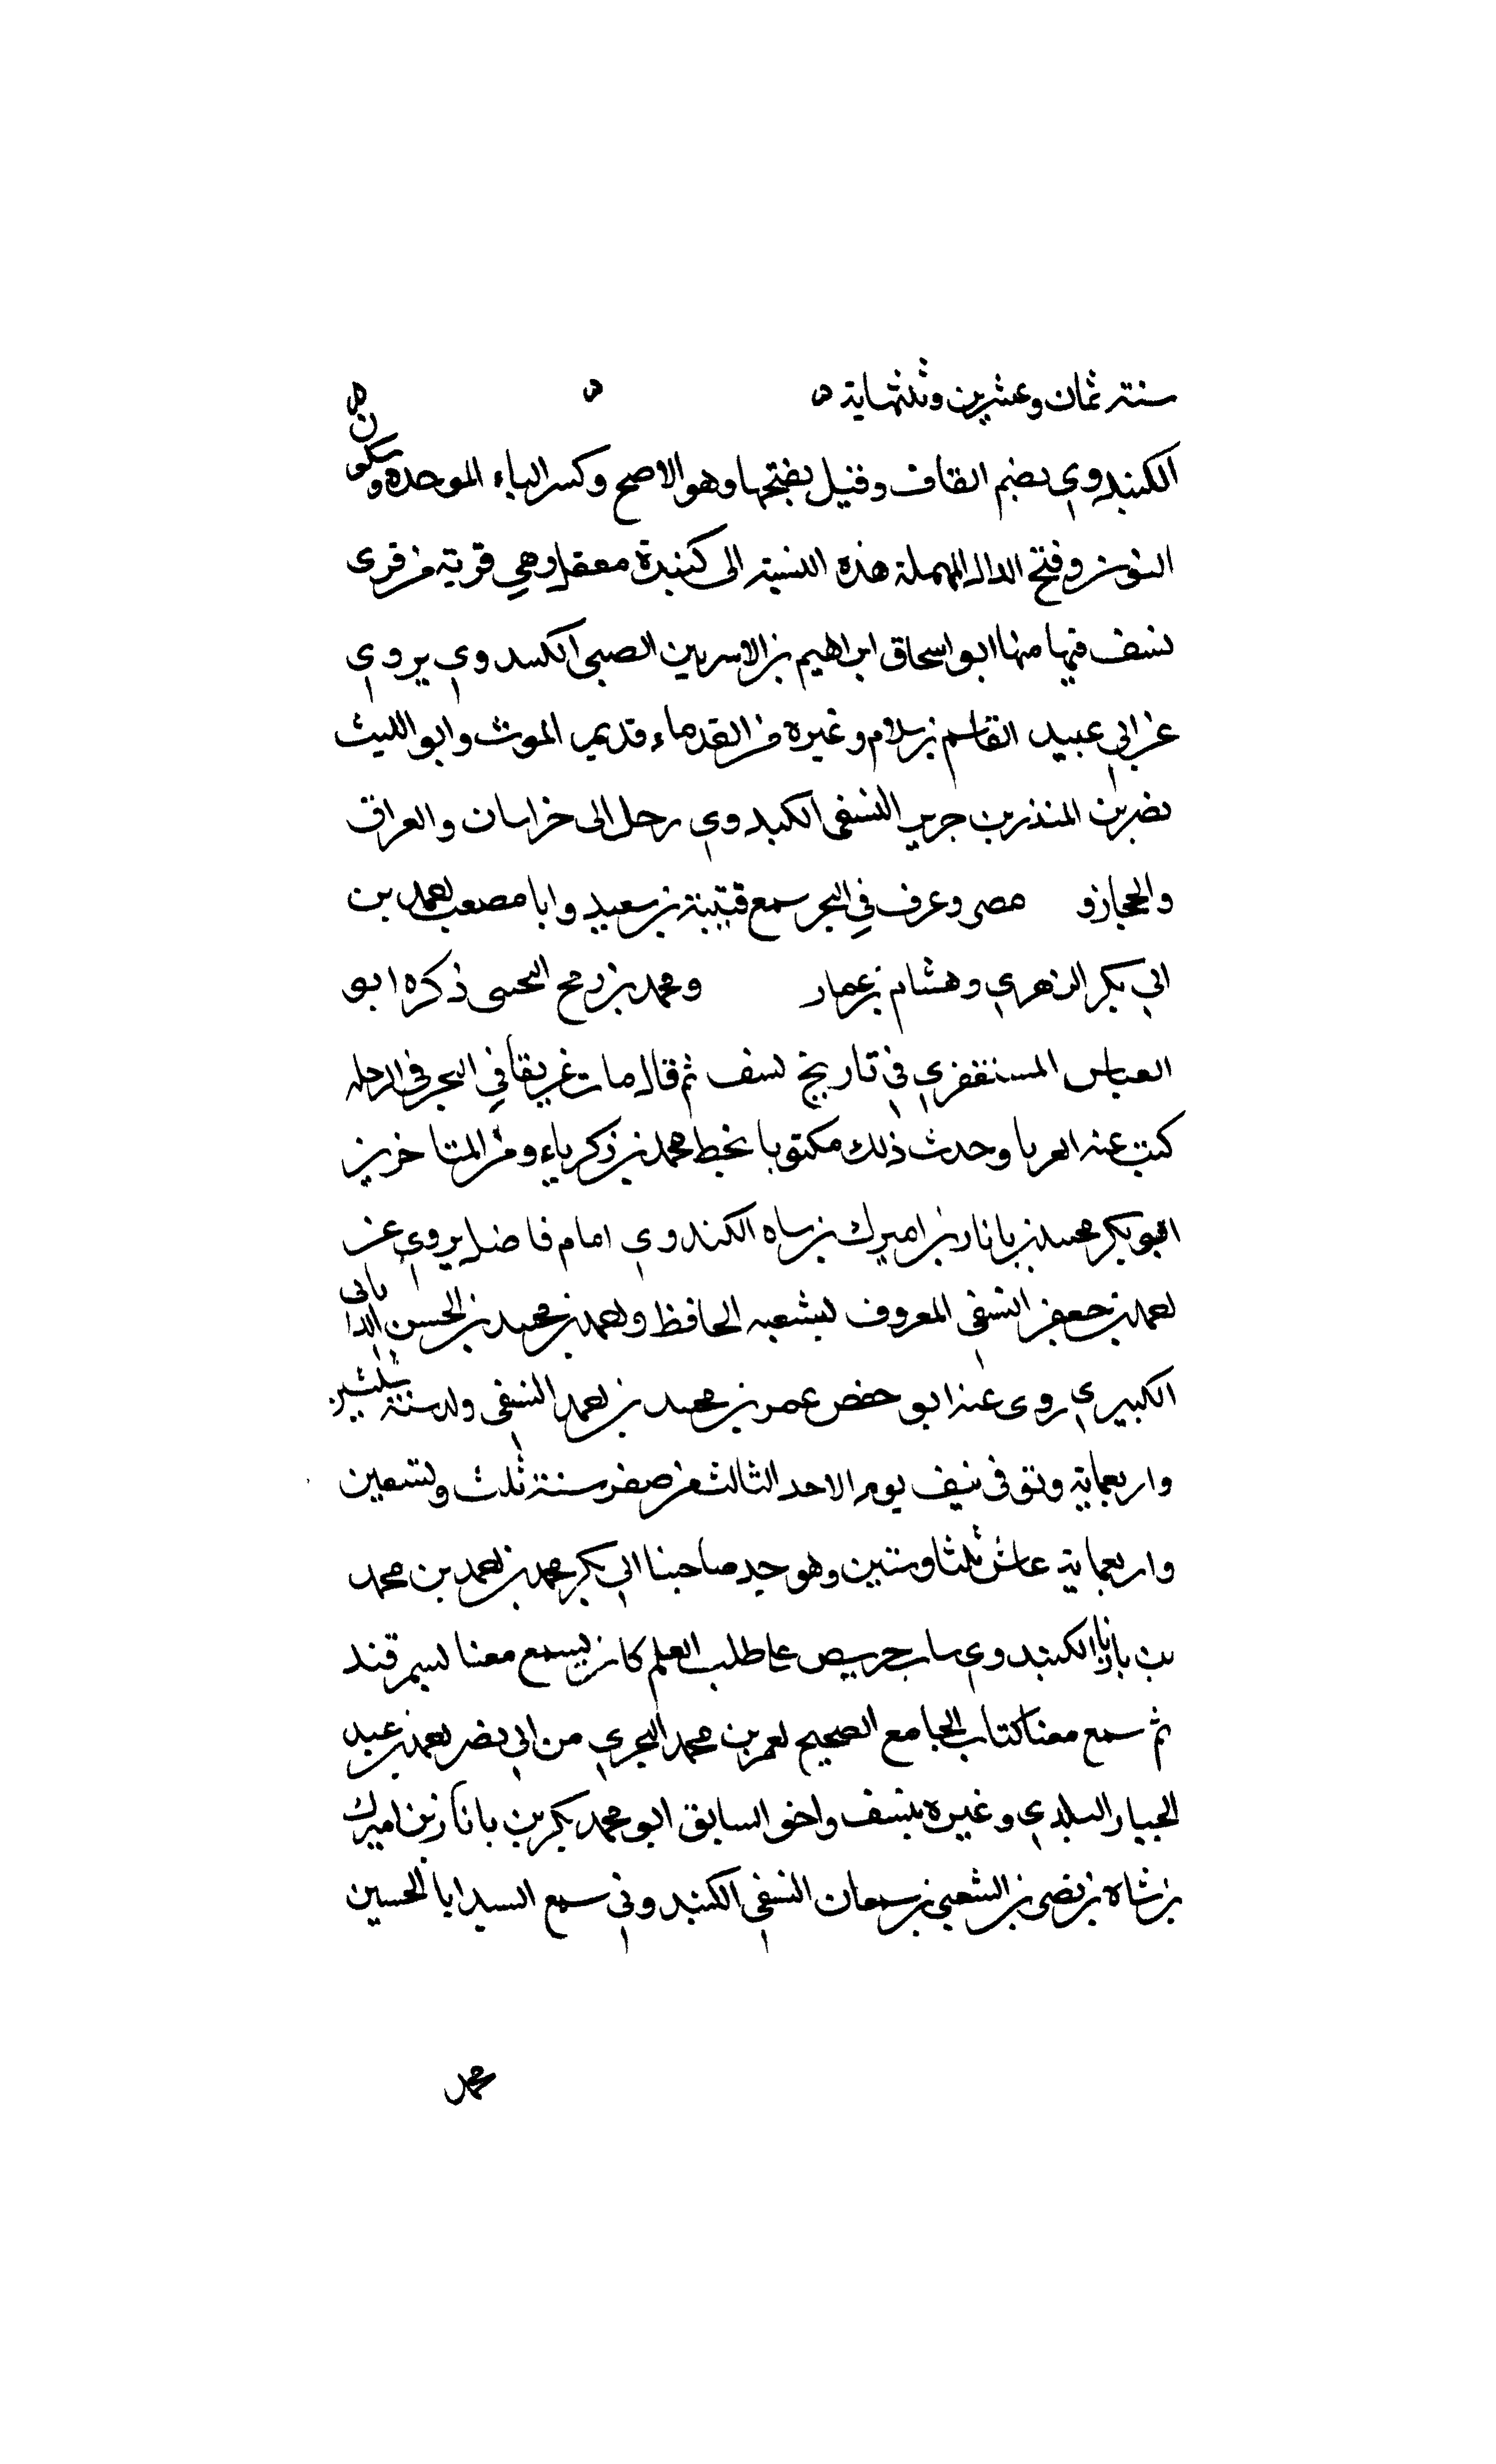 سنة ثمان وعشرين وثلثماية ه ه ه
الكبندوي بضم القاف وقيل بفتحها وهو الاصح وكسر الباء الموحدة وسكون
النون وفتح الدال المهملة هذه النسبة الى كبندة معقل وهي قرية من قرى
نسف فيها منها ابو اسحاق ابراهيم بن الكبندوي يروي
عن ابي عبيد القاسم بن سلام وغيره من القدماء قديم الموت وابو الليث
نصر بن المنذر بن جرير النسفي الكبدوي رحل الى خراسان والعراق
والحجاز و مصر وغرق في البحر سمع قتيبة بن سعيد وابا مصعب احمد بن
ابي بكر الزهري وهشام بن عمار ومحمد بن رمح ذكره ابو
العباس المستغفري في تاريخ نسف ثم قال مات غريقا في البحر في الرحلة
كتب عنه وحدث ذلك مكتوبا بخط محمد بن زكرياء ومن المتاخرين
ابو بكر محمد بن بانار بن اميرك بن ساه الكندوي امام فاضل يروي عن
احمد بن جعفر النسفي المعروف الحافظ واحمد بن محمد بن الحسن
الكبيري روى عنه ابو حفص عمر بن محمد بن احمد النسفي ولد سنة ثلثين
واربعماية وتوفي يوم الاحد الثالث من صفر سنة ثلث وتسعين
واربعماية عاش ثلثا وستين وهو جد صاحبنا ابي بكر محمد بن احمد بن محمد
بن بانار الكبندوي ساب حريص على طلب العلم كان يسمع معنا بسمرقند
ثم سمع معنا كتاب الجامع الصحيح لعمر بن محمد البجري من ابي نصر احمد بن عبد
الجبار البلدي وغيره بنسف واخو السابق ابو محمد بكر بن بانار بن اميرك
بن شاه بن الشعبي بن سمعان النسفي الكبندوي سمع السيد ابا الحسين
محمد